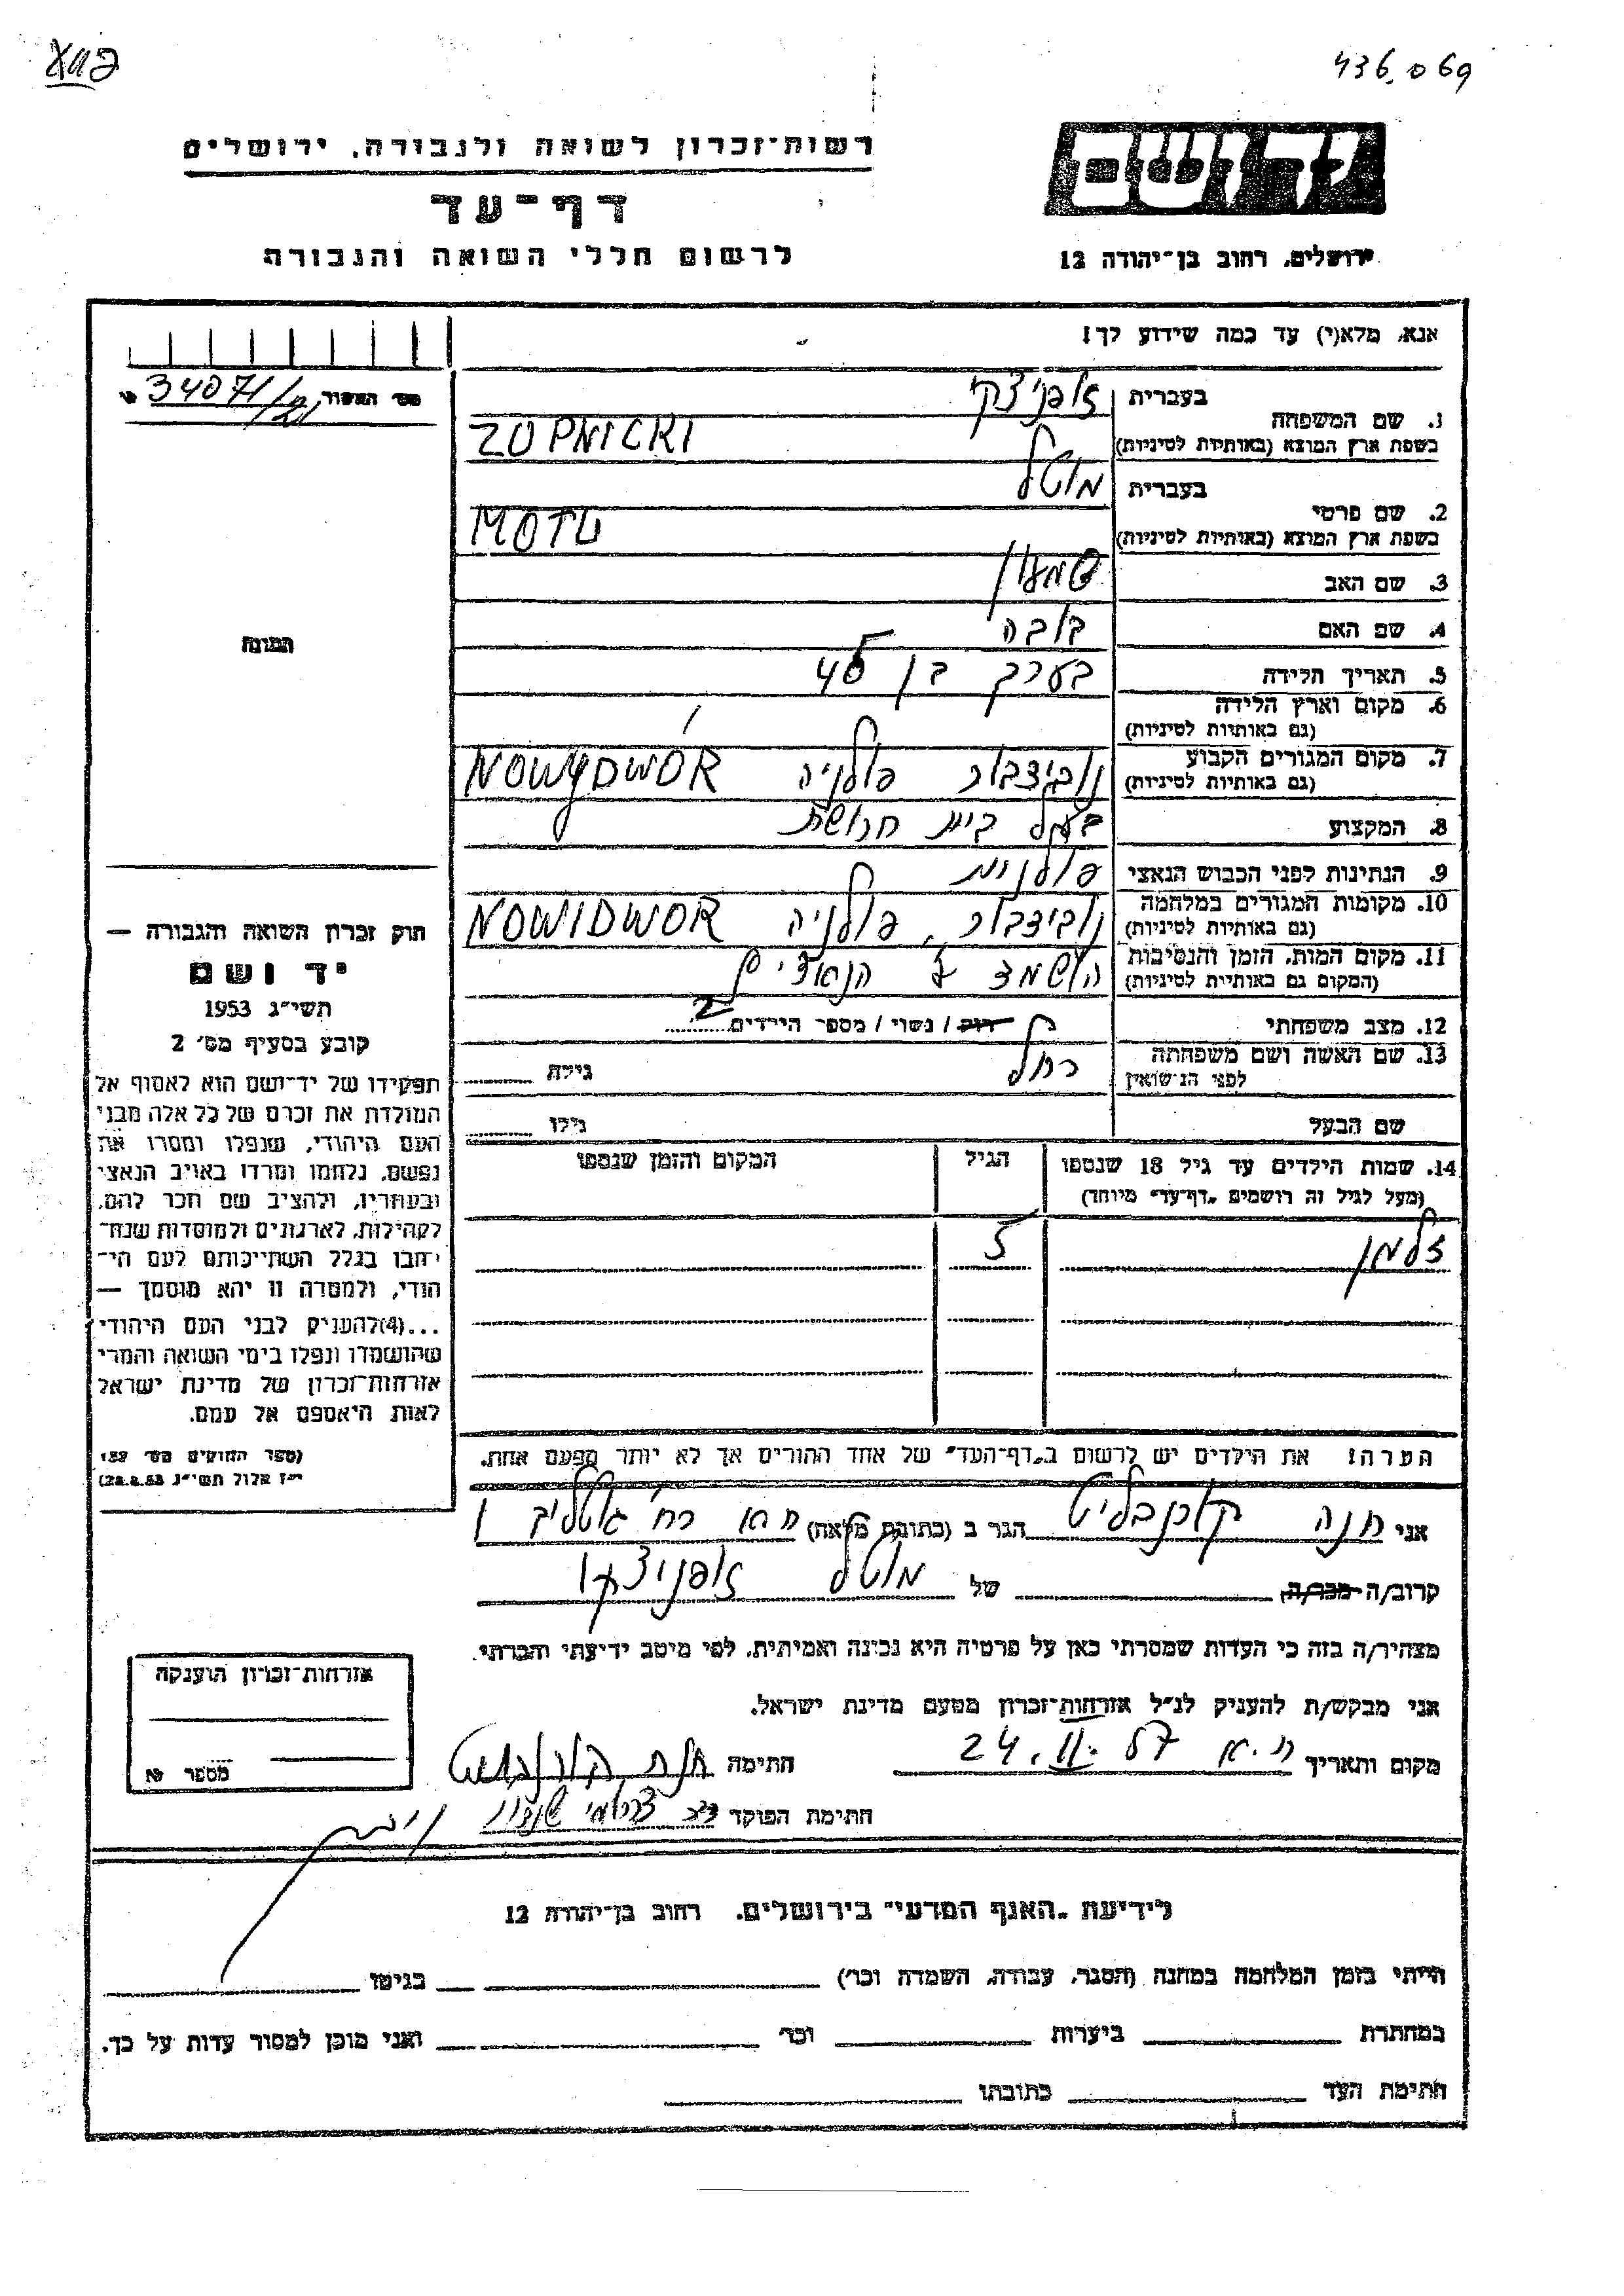 436069
רשות־זכרון לשואה ולגבורה, ירושלים
דף־עד
לרשום חללי השואה והגבורה
יד ושם
ירושלים, רחוב בן־יהודה 12
אנא, מלא(י) עד כמה שידוע לך!
מס׳ האשור 34071/
1. שם המשפחה
בעברית זופניצקי
בשפת ארץ המוצא (באותיות לטיניות) ZUPNICKI
2. שם פרטי
בעברית מוטל
בשפת ארץ המוצא (באותיות לטיניות) MOTL
3. שם האב שמעון
4. שם האם בובה
5. תאריך הלידה בערך בן 45
6. מקום וארץ הלידה
(גם באותיות לטיניות)
7. מקום המגורים הקבוע נוביצבור פולניה NOWYDWÓR
(גם באותיות לטיניות)
8. המקצוע בעל בית חרושת
9. הנתינות לפני הכבוש הנאצי פולנית
10. מקומות המגורים במלחמה נוביצבור, פולניה NOWIDWOR
(גם באותיות לטיניות)
11. מקום המות, הזמן והנסיבות הושמד ע הנאצים
(המקום גם באותיות לטיניות)
12. מצב משפחתי רוק / נשוי / מספר הילדים 2
13. שם האשה ושם משפחתה רחל גילה
לפני הנישואין
שם הבעל גילו
14. שמות הילדים עד גיל 18 שנספו הגיל המקום והזמן שנספו
(מעל לגיל זה רושמים „דף־עד״ מיוחד)
זלמן 5
תמונה
חוק זכרון השואה והגבורה —
יד ושם
תשי״ג 1953
קובע בסעיף מס׳ 2
תפקידו של יד־ושם הוא לאסוף אל
המולדת את זכרם של כל אלה מבני
העם היהודי, שנפלו ומסרו את
נפשם, נלחמו ומרדו באויב הנאצי
ובעוזריו, ולהציב שם וזכר להם,
לקהילות, לארגונים ולמוסדות שנח־
רבו בגלל השתייכותם לעם הי־
הודי, ולמטרה זו יהא מוסמך —
...(4)להעניק לבני העם היהודי
שהושמדו ונפלו בימי השואה והמרי
אזרחות־זכרון של מדינת ישראל
לאות היאספם אל עמם.
(ספר החוקים מס׳ 132
י״ז אלול תשי״ג 28.8.53)
הערה! את הילדים יש לרשום ב„דף־העד״ של אחד ההורים אך לא יותר מפעם אחת.
אני חנה הגר ב (כתובת מלאה)
קרוב/ה מכר/ה של מוטל זופניצקי
מצהיר/ה בזה כי העדות שמסרתי כאן על פרטיה היא נכונה ואמיתית, לפי מיטב ידיעתי והכרתי.
אני מבקש/ת להעניק לנ״ל אזרחות־זכרון מטעם מדינת ישראל.
מקום ותאריך ת.א 24.II.57 חתימה חנה
חתימת הפוקד
אזרחות־זכרון הוענקה
מספר №
לידיעת „האגף המדעי״ בירושלים, רחוב בן־יהודה 12
הייתי בזמן המלחמה במחנה (הסגר, עבודה, השמדה וכר׳) בגיטו
במחתרת ביערות וכר׳ ואני מוכן למסור עדות על כך.
חתימת העד כתובתו